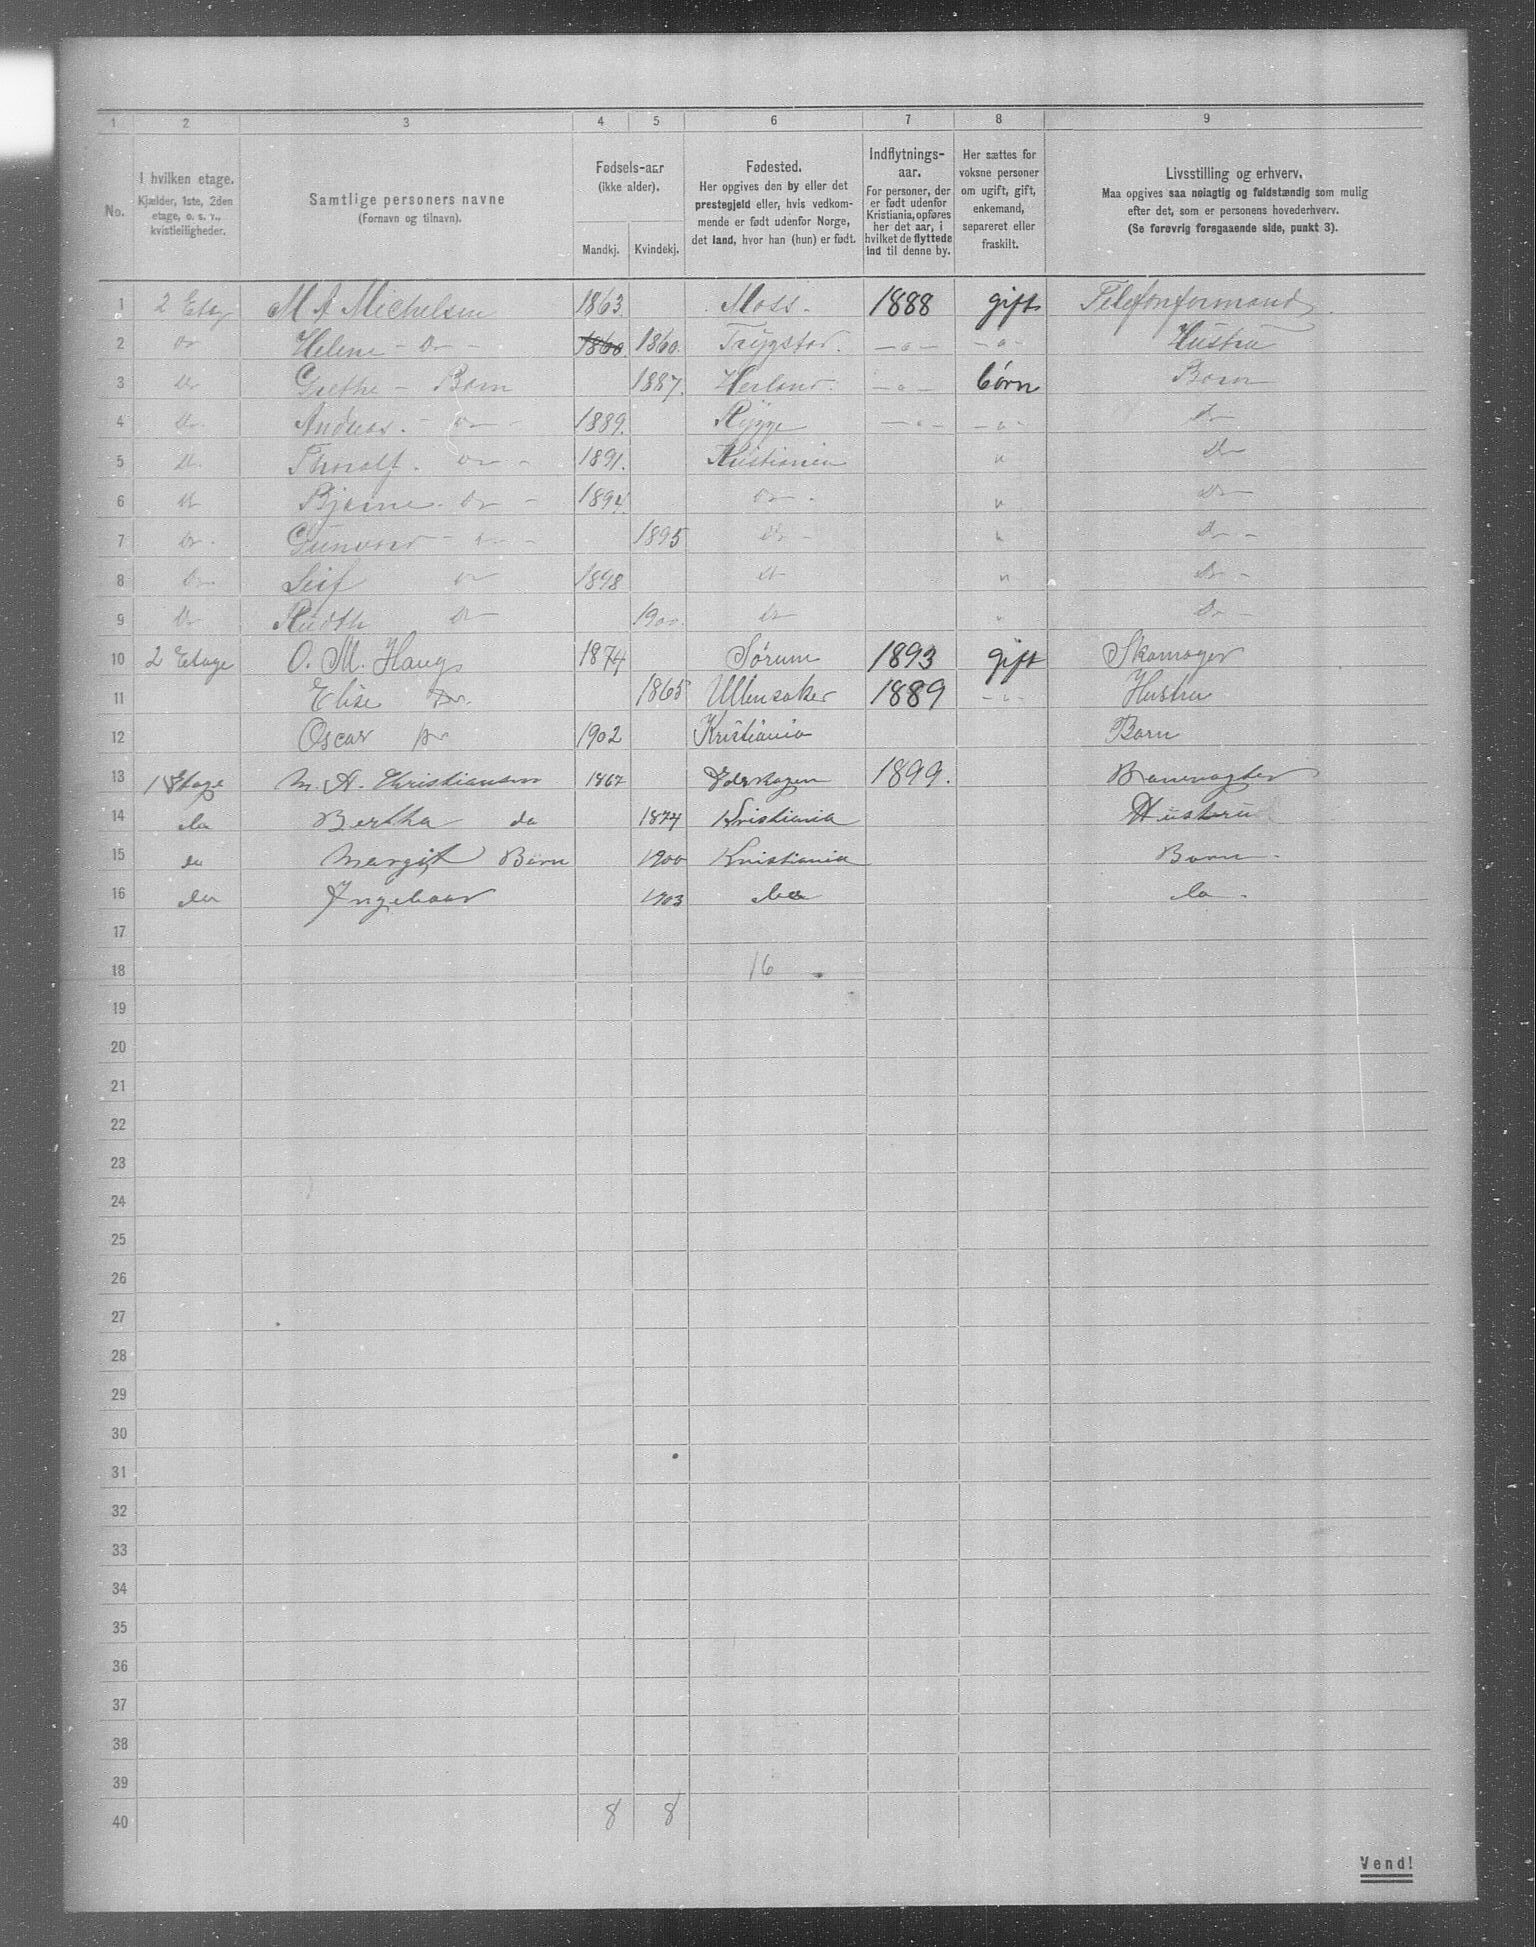 1 2 3 4 5 6 7 8 9
No.
I hvilken etage.
Kjælder, 1ste, 2den
etage, o. s. v.,
kvistleiligheder.
Samtlige personers navne
(Fornavn og tilnavn).
Fødsels-aar
(ikke alder).
Mandkj. Kvindekj.
Fødested.
Her opgives den by eller det
prestegjeld eller, hvis vedkom-
mende er født udenfor Norge,
det land, hvor han (hun) er født.
Indflytnings-
aar.
For personer, der
er født udenfor
Kristiania, opføres
her det aar, i
hvilket de flyttede
ind til denne by.
Her sættes for
voksne personer
om ugift, gift,
enkemand,
separeret eller
fraskilt.
Livsstilling og erhverv.
Maa opgives saa nøiagtig og fuldstændig som mulig
efter det, som er personens hovederhverv.
(Se forøvrig foregaaende side, punkt 3).
1 2 Etag M A Michelsen 1863. Moss. 1888 gift Telefonformand
2 Do Helene - Do - 1860 1860. Trygstad. -"- -"- Hustru
3 Do Grethe - Barn 1887. -"- børn Barn
4 Do Andreas. - Do 1889. Rygge -"- -"- Do
5 Do Thoralf. Do - 1891. Kristiania " Do
6 Do Bjarne. Do - 1894. Do - " Do
7 Do - Gunvor - Do - 1895 Do - " Do -
8 Do Leif Do 1898 Do " Do -
9 Do Ruth Do 1900. Do " Do -
10 2 Etage O. M. Haug 1874 Sørum 1893 gift Skomager
11 Elise Do. 1865 Ullensaker 1889 -"- Hustru
12 Oscar Do 1902 Kristiania Barn
13 1 Etage M. A. Christiansen 1867 1899. Banevogter
14 do Bertha do 1874 Kristiania Hustru
15 do Margit Børn 1900 Kristiania Barn -
16 do 1903 do do -
17
18 16
19
20
21
22
23
24
25
26
27
28
29
30
31
32
33
34
35
36
37
38
39
40 8 8
Vend!